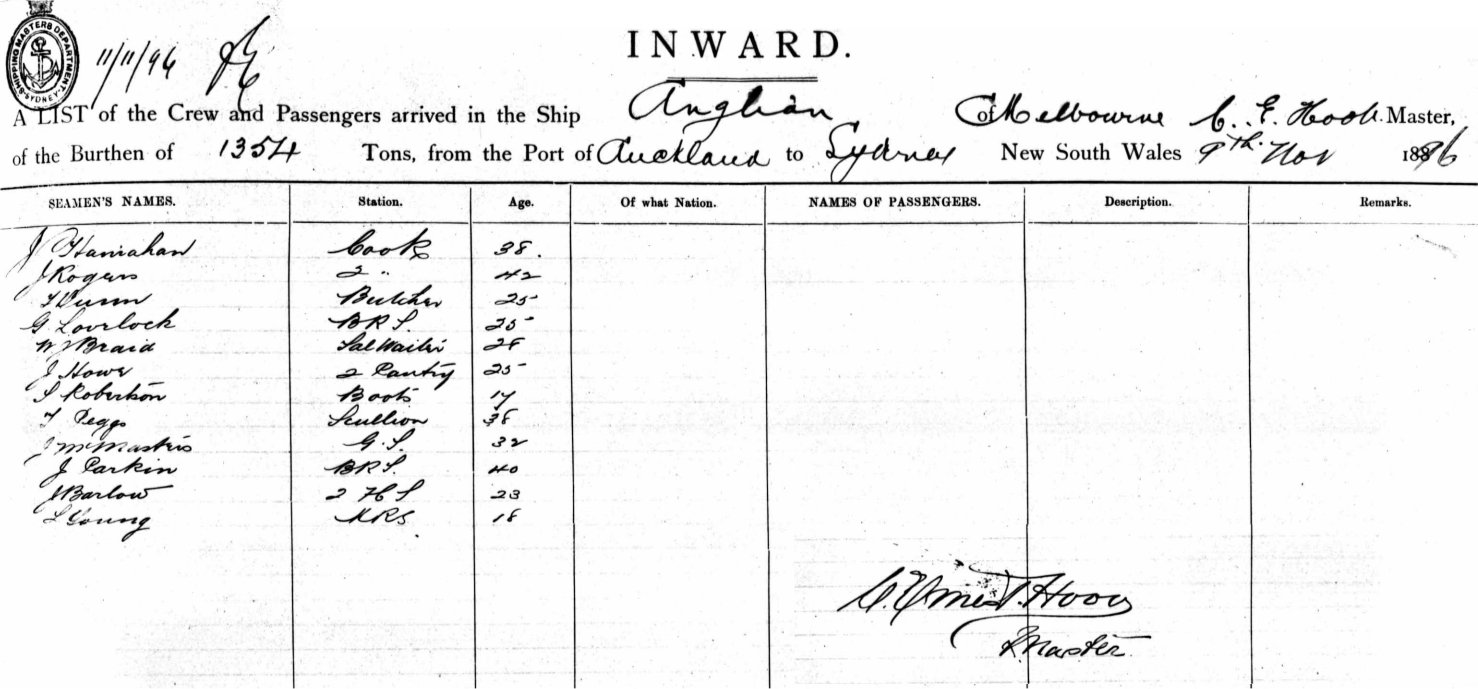 SHIPPING MASTERS DEPARTMENT SYDNEY
11/11/96
INWARD.
A LIST of the Crew and Passengers arrived in the Ship Anglian Of Melbourne C. E. Hook Master,
of the Burthen of 1354 Tons, from the Port of Auckland to Sydney New South Wales 9th. Nov 1896
SEAMEN'S NAMES. Station. Age. Of what Nation. NAMES OF PASSENGERS. Description. Remarks.
J Hanrahan Cook 38.
J Rogers 2 " 42
T Dunn Butcher 25
G Lovelock BRS. 25
W J Braid Sal Waiter 28
J Howe 2 Pantry 25
S Robertson Boots 17
T Peggs Scullion 38
J McMasters G.S. 32
J Parkin BRS. 40
J Barlow 2 H S 23
L Young MRS 18
Master